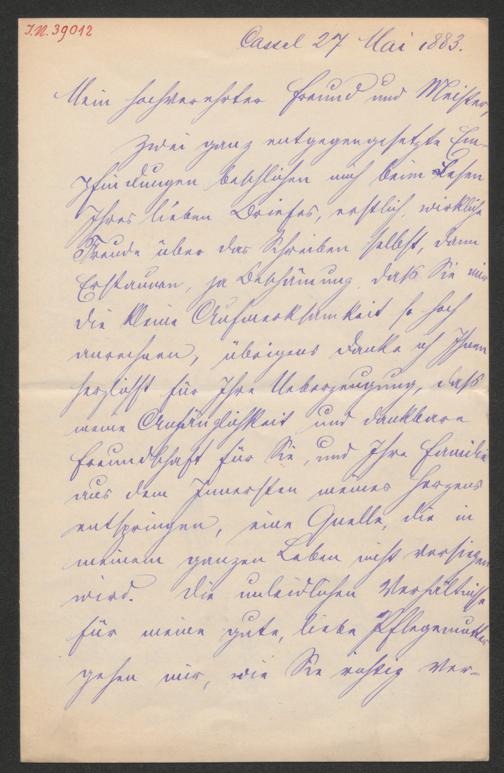 I.N. 39012
Cassel 27 Mai 1883.
Mein hochverehrter Freund und Meister,
Zwei ganz entgegengesetzte Em-
pfindungen beschlichen mich beim Lesen
Ihres lieben Briefes, erstlich, wirkliche
Freude über das Schreiben selbst, dann
Erstaunen, ja Beschämung, daß Sie mir
die kleine Aufmerksamkeit so hoch
anrechnen, übrigens danke ich Ihnen
herzlichst für Ihre Ueberzeugung, daß
meine Anhänglichkeit und dankbare
Freundschaft für Sie, und Ihre Familie
aus dem Innersten meines Herzens
entspringen, eine Quelle, die in
meinem ganzen Leben nicht versiegen
wird. Die unleidlichen Verhältnisse
für meine gute, liebe Pflegemutter
gehen mir, wie Sie richtig ver-